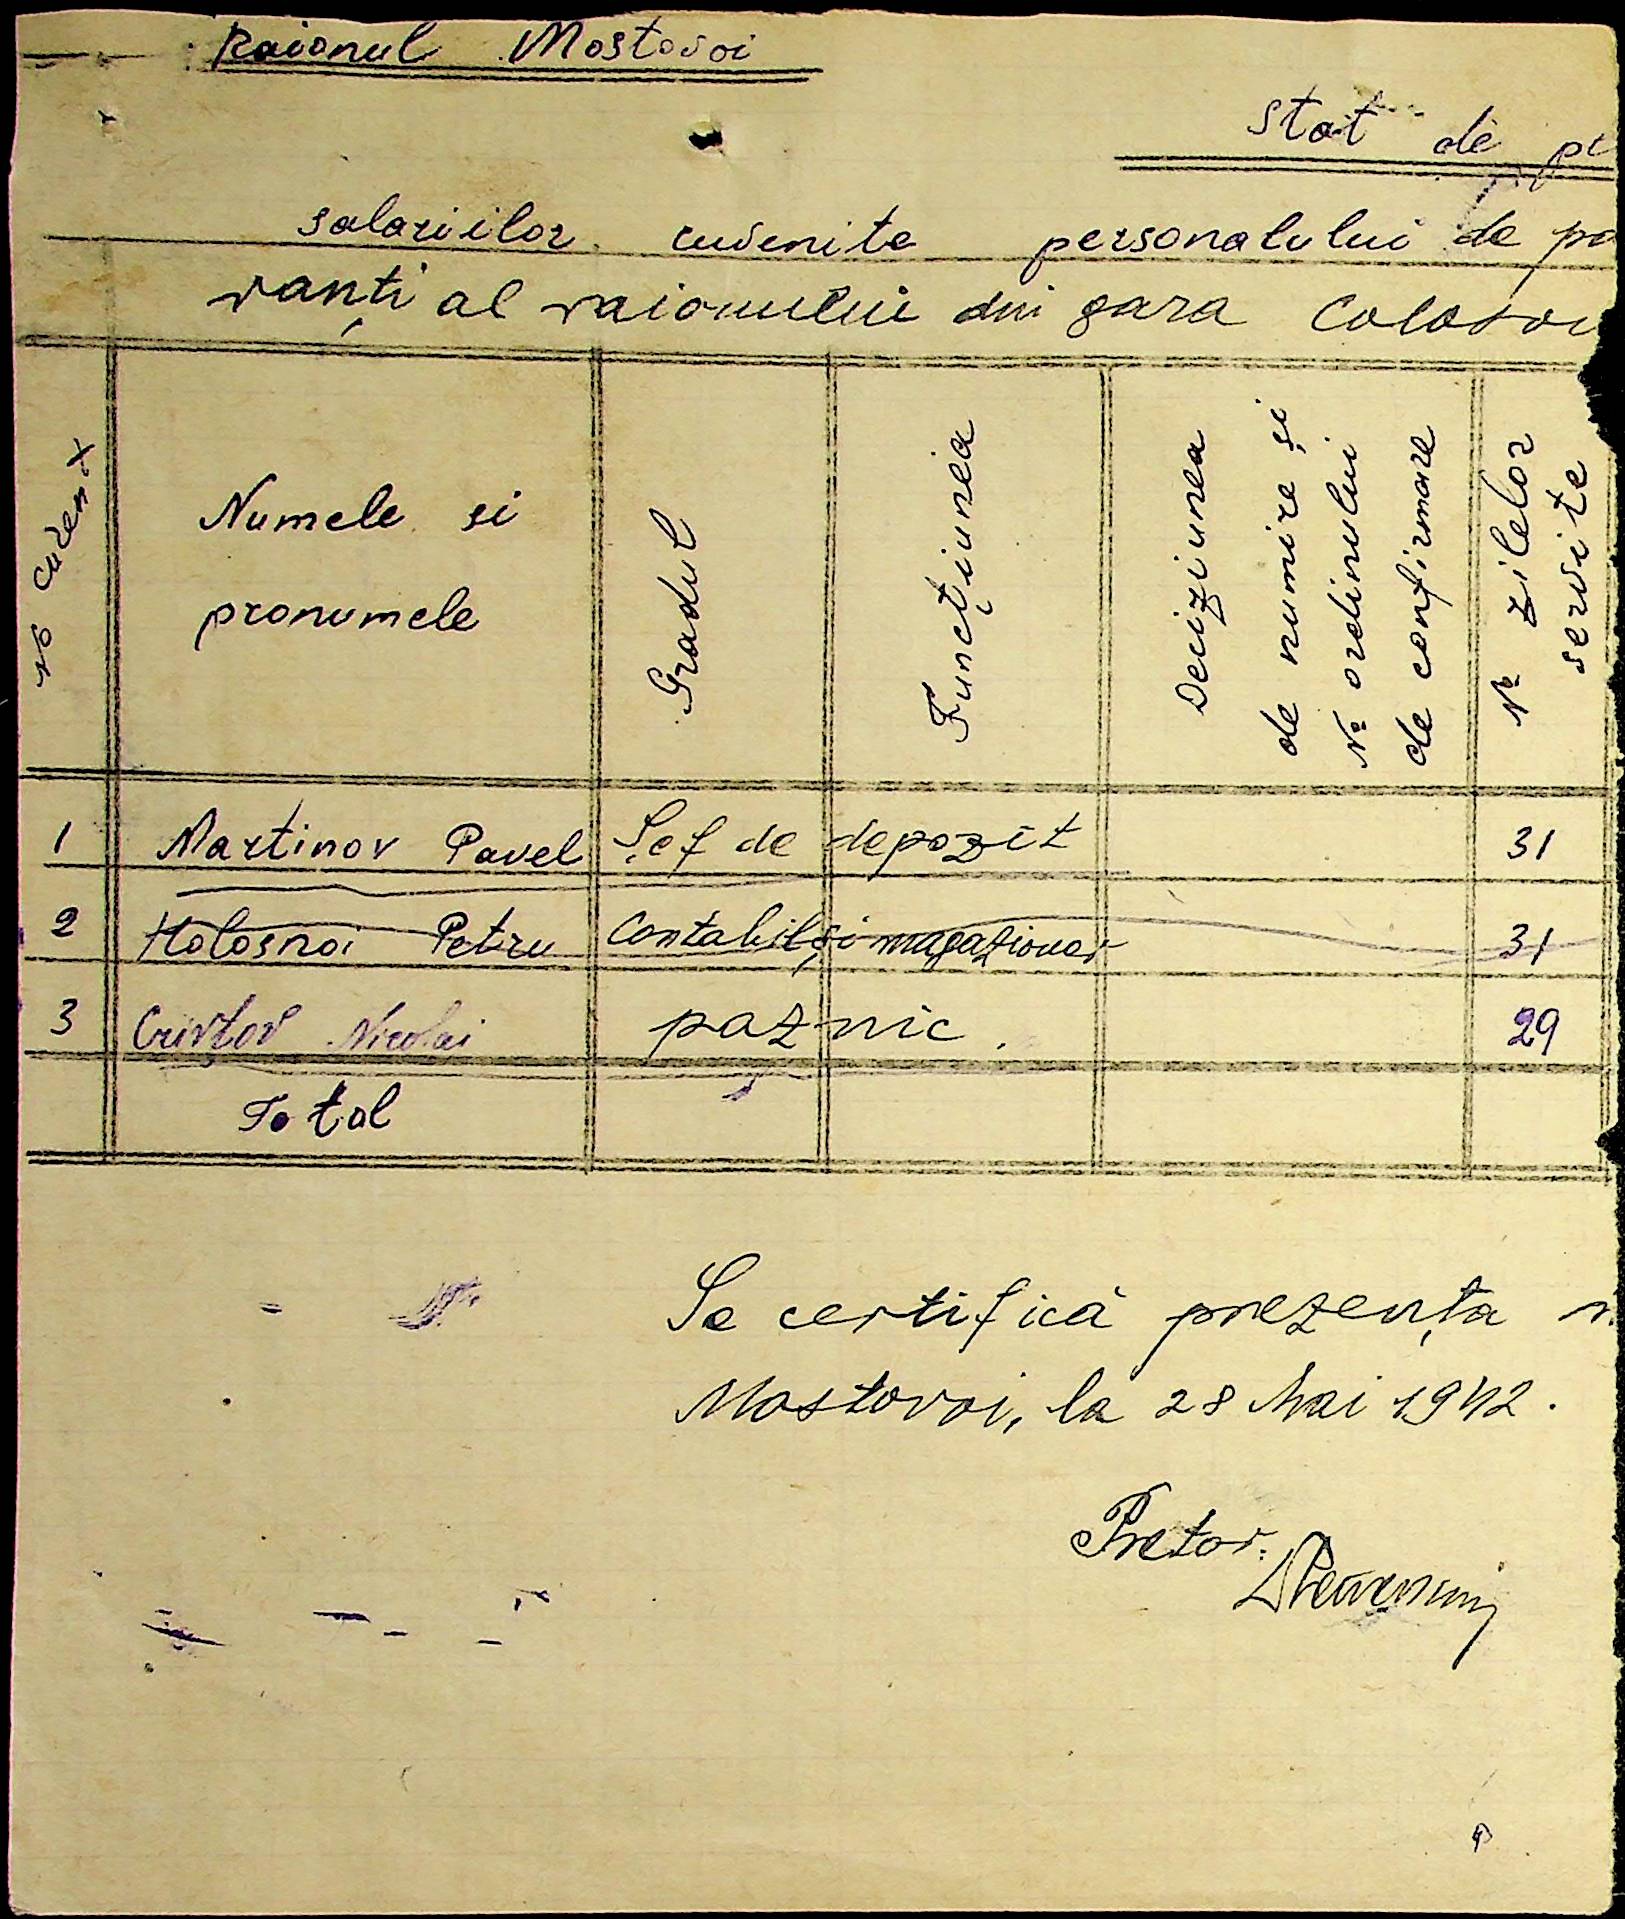 Raionul Mostovoi
Stat de
salariilor cuvenite personalului de
ranți al raionului din gara
No Curent
Numele si
pronumele
Gradul
Funcțiunea
Deciziunea
de numire și
No ordinului
de confirmare
No zilelor
servite
1 Martinov Pavel Șef de depozit 31
2 Holosnoi Petru Contabil și magazioner 31
3 Nicolai paznic 29
Total
Se certifică prezența
Mostovoi, la 28 Mai 1942.
Pretor: